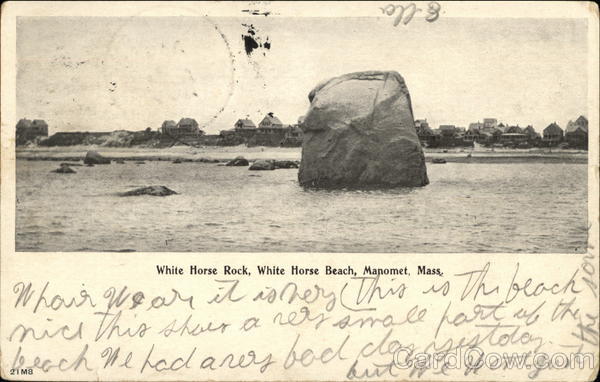 Ella
White Horse Rock, White Horse Beach, Manomet, Mass.
Whair We are it is very (This is the beach
nice This shows a very small part of the
beach We had a very bad day yestday
but
21M8
CardCow.com